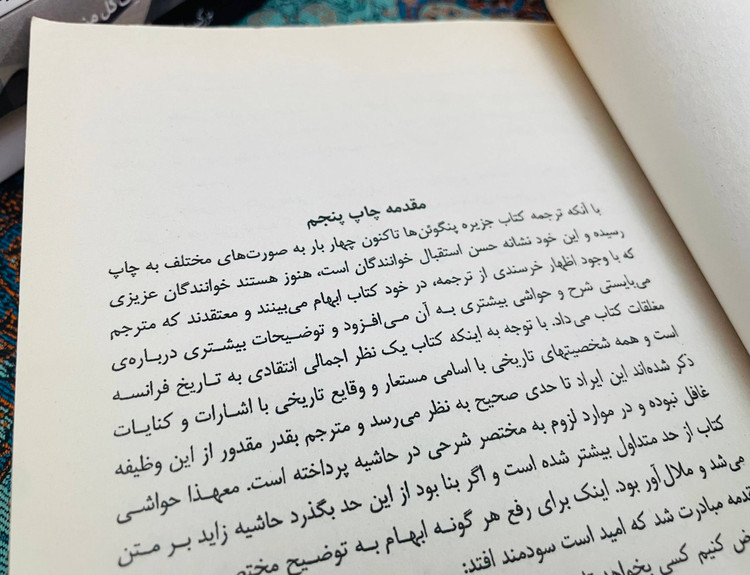 مقدمه چاپ پنجم
با آنکه ترجمه کتاب جزیره پنگوئن‌ها تاکنون چهار بار به صورت‌های مختلف به چاپ
رسیده و این خود نشانه حسن استقبال خوانندگان است، هنوز هستند خوانندگان عزیزی
که با وجود اظهار خرسندی از ترجمه، در خود کتاب ابهام می‌بینند و معتقدند که مترجم
می‌بایستی شرح و حواشی بیشتری به آن می‌افزود و توضیحات بیشتری درباره‌ی
مغلقات کتاب می‌داد. با توجه به اینکه کتاب یک نظر اجمالی انتقادی به تاریخ فرانسه
است و همه شخصیتهای تاریخی با اسامی مستعار و وقایع تاریخی با اشارات و کنایات
ذکر شده‌اند این ایراد تا حدی صحیح به نظر می‌رسد و مترجم بقدر مقدور از این وظیفه
غافل نبوده و در موارد لزوم به مختصر شرحی در حاشیه پرداخته است. معهذا حواشی
کتاب از حد متداول بیشتر شده است و اگر بنا بود از این حد بگذرد حاشیه زاید بر متن
می‌شد و ملال‌آور بود. اینک برای رفع هر گونه ابهام به توضیح
مبادرت شد که امید است سودمند افتد:
کنیم کسی بخواهد